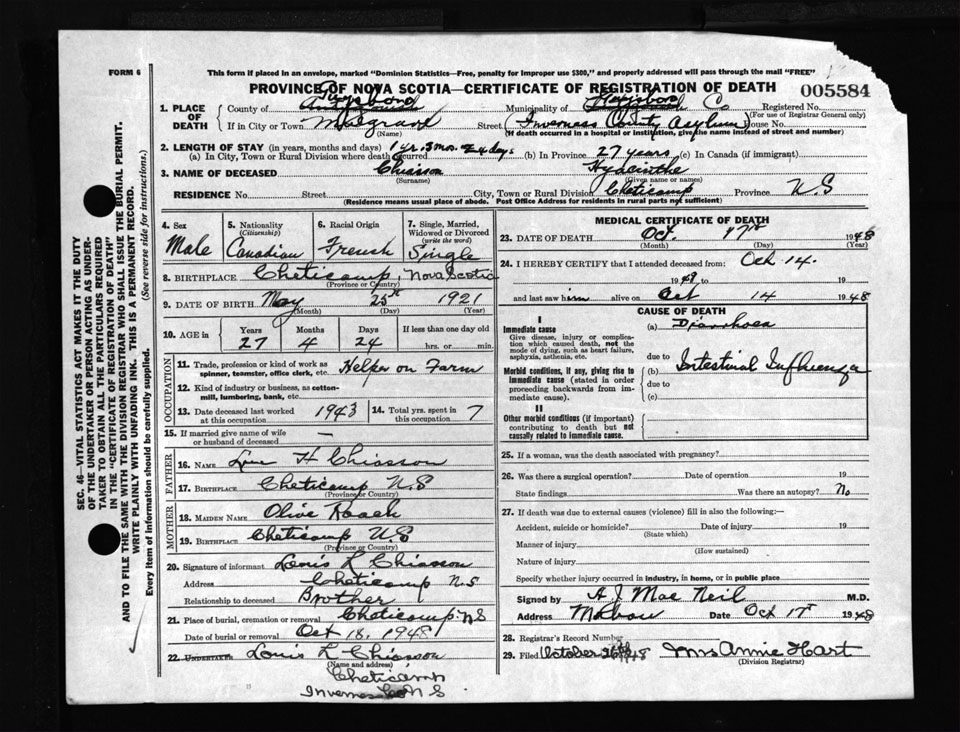 FORM 6
This form if placed in an envelope, marked "Dominion Statistics—Free, penalty for improper use $300," and properly addressed will pass through the mail "FREE"
PROVINCE OF NOVA SCOTIA—CERTIFICATE OF REGISTRATION OF DEATH
005584
1. PLACE OF DEATH
County of Municipality of Co Registered No.
(For use of Registrar General only)
If in City or Town Mulgrave Street (Inverness County Asylum) House No.
(Name) (If death occurred in a hospital or institution, give the name instead of street and number)
2. LENGTH OF STAY (in years, months and days) 1 yr. 3 mos. 24 days
(a) In City, Town or Rural Division where death occurred (b) In Province 27 years (c) In Canada (if immigrant)
3. NAME OF DECEASED Chiasson Hyacinthe
(Surname) (Given name or names)
RESIDENCE No. Street City, Town or Rural Division Cheticamp Province N.S
(Residence means usual place of abode. Post Office Address for residents in rural parts not sufficient)
SEC. 46—VITAL STATISTICS ACT MAKES IT THE DUTY
OF THE UNDERTAKER OR PERSON ACTING AS UNDER-
TAKER TO OBTAIN ALL THE PARTICULARS REQUIRED
IN THE "CERTIFICATE OF REGISTRATION OF DEATH"
AND TO FILE THE SAME WITH THE DIVISION REGISTRAR WHO SHALL ISSUE THE BURIAL PERMIT.
WRITE PLAINLY WITH UNFADING INK. THIS IS A PERMANENT RECORD.
Every item of information should be carefully supplied. (See reverse side for instructions.)
4. Sex Male
5. Nationality (Citizenship) Canadian
6. Racial Origin French
7. Single, Married, Widowed or Divorced (write the word) Single
8. BIRTHPLACE Cheticamp, Nova Scotia
(Province or Country)
9. DATE OF BIRTH May 25th 1921
(Month) (Day) (Year)
10. AGE in Years Months Days If less than one day old
27 4 24 hrs. or min.
OCCUPATION
11. Trade, profession or kind of work as spinner, teamster, office clerk, etc. Helper on Farm
12. Kind of industry or business, as cotton-mill, lumbering, bank, etc.
13. Date deceased last worked at this occupation 1943
14. Total yrs. spent in this occupation 7
15. If married give name of wife or husband of deceased —
FATHER
16. NAME H Chiasson
17. BIRTHPLACE Cheticamp N.S
(Province or Country)
MOTHER
18. MAIDEN NAME Olive Roach
19. BIRTHPLACE Cheticamp N S
(Province or Country)
20. Signature of informant Louis L Chiasson
Address Cheticamp N.S
Relationship to deceased Brother
21. Place of burial, cremation or removal Cheticamp N.S
Date of burial or removal Oct 18, 1948
22. UNDERTAKER Louis L Chiasson
(Name and address)
Cheticamp
Inverness Co N S
MEDICAL CERTIFICATE OF DEATH
23. DATE OF DEATH Oct. 17th 1948
(Month) (Day) (Year)
24. I HEREBY CERTIFY that I attended deceased from: Oct 14.
1948 to 19
and last saw him alive on Oct 14 1948
CAUSE OF DEATH
I
Immediate cause
Give disease, injury or complication which caused death, not the mode of dying, such as heart failure, asphyxia, asthenia, etc.
(a) Diarrhoea
due to
Morbid conditions, if any, giving rise to immediate cause (stated in order proceeding backwards from immediate cause).
(b) Intestinal Influenza
due to
(c)
II
Other morbid conditions (if important) contributing to death but not causally related to immediate cause.
25. If a woman, was the death associated with pregnancy?
26. Was there a surgical operation? Date of operation 19
State findings Was there an autopsy? No
27. If death was due to external causes (violence) fill in also the following—
Accident, suicide or homicide? Date of injury 19
(State which)
Manner of injury
(How sustained)
Nature of injury
Specify whether injury occurred in industry, in home, or in public place
Signed by A J Mac Neil M.D.
Address Mabou Date Oct 17 1948
28. Registrar's Record Number
29. Filed October 26th 1948 Mrs Annie Hart
(Division Registrar)